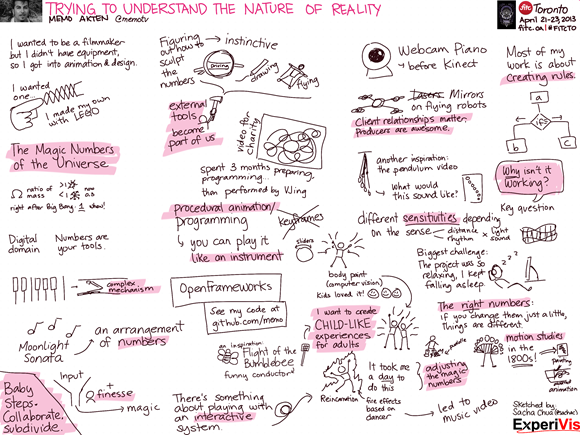 TRYING TO UNDERSTAND THE NATURE OF REALITY
MEMO AKTEN @memotv
fitc Toronto
April 21-23, 2013
fitc.ca | #FITCTO
I wanted to be a filmmaker
but I didn't have equipment,
so I got into animation & design.
I wanted
one...
I made my own
with LEGO
The Magic Numbers
of the Universe
Ω ratio of
mass
>1
<1
now
0.3
right after Big Bang: 1
Digital
domain
Numbers are
your tools.
complex
mechanism
Moonlight
Sonata
an arrangement
of numbers
Baby
Steps.
Collaborate,
subdivide.
Input
+
finesse
magic
Figuring
out how to
sculpt
the
numbers
instinctive
driving
drawing
flying
external
tools
become
part of us
video for
charity
spent 3 months preparing,
programming...
then performed by
Procedural animation/
programming
Keyframes
you can play it
like an instrument
sliders
Openframeworks
See my code at
github.com/memo
body paint
(computer vision)
Kids loved it!
an inspiration:
Flight of the
Bumblebee
funny conductor
I want to create
CHILD-LIKE
experiences
for adults
There's something
about playing with
an interactive
system.
Reincarnation
It took me
a day to
do this
fire effects
based on
dancer
adjusting
the magic
numbers
led to
music video
Webcam Piano
before Kinect
Lasers Mirrors
on flying robots
Client relationships matter.
Producers are awesome.
another inspiration:
the pendulum video
What would
this sound like?
different sensitivities depending
on the sense
distance
rhythm
x
light
sound
Biggest challenge:
The project was so
relaxing, I kept
falling asleep.
zzz
The right numbers:
if you change them just a little,
things are different.
motion studies
in the
1800s!
Most of my
work is about
creating rules.
a
if
b
c
Why isn't it
working?
Key question
Sketched by:
Sacha Chua (@sachac)
ExperiVis